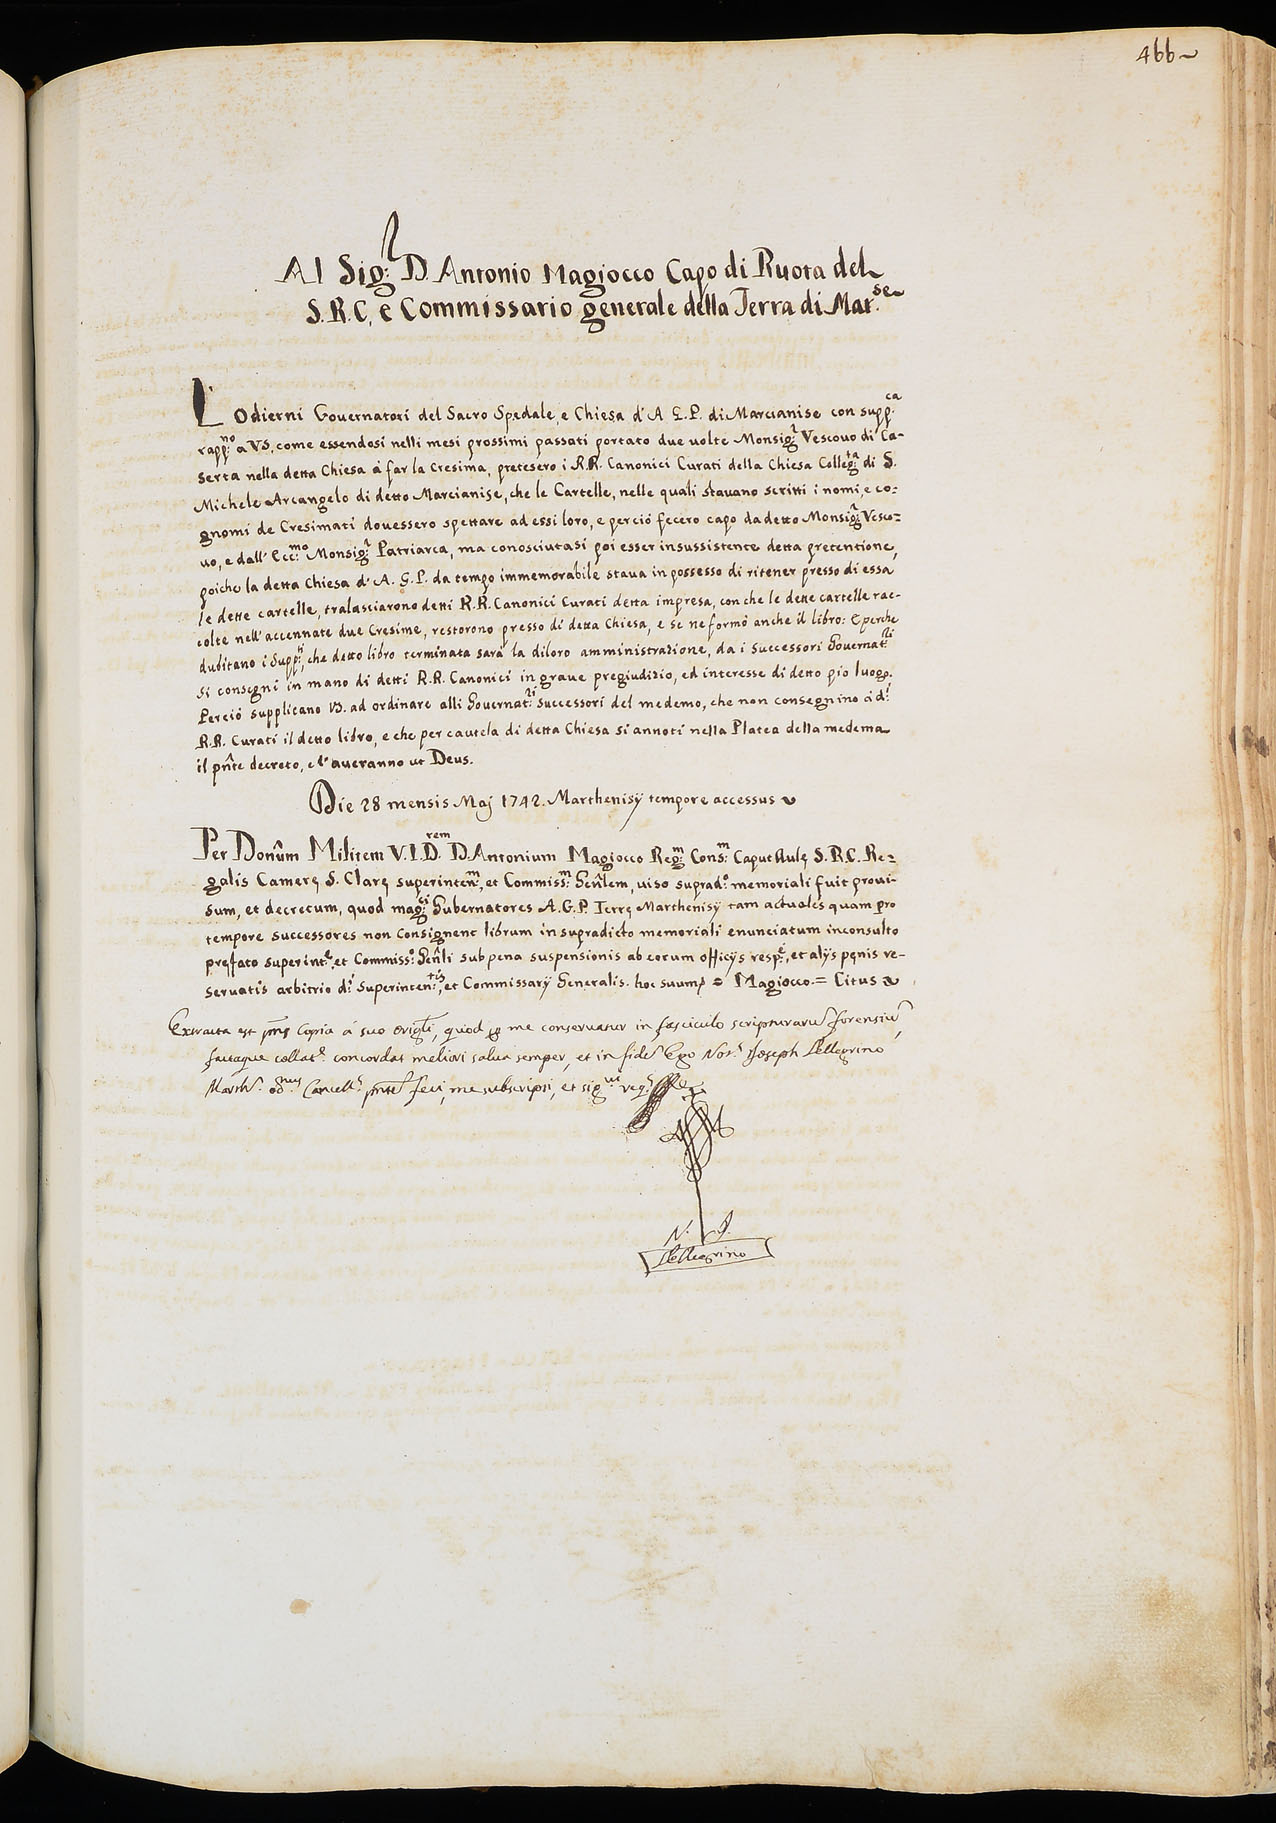 466~
Al Sig.r D. Antonio Magiocco Capo di Ruota del
S.R.C. e Commissario generale della Terra di Mar.se
L'Odierni Governatori del Sacro Spedale, e Chiesa d'A. G.P. di Marcianise con supp.ca
rapp.no a VS. come essendosi nelli mesi prossimi passati portato due volte Monsig.r Vescovo di Ca-
serta nella detta Chiesa à far la Cresima, pretesero i R.R. Canonici Curati della Chiesa Colleg.ta di S.
Michele Arcangelo di detto Marcianise, che le Cartelle, nelle quali stavano scritti i nomi, e co=
gnomi de Cresimati dovessero spettare ad essi loro, e perciò fecero capo da detto Monsig.r Vesco=
vo, e dall' Ecc.mo Monsig.r Patriarca, ma conosciutasi poi esser insussistente detta pretentione,
poiche la detta Chiesa d'A. G.P. da tempo immemorabile stava in possesso di ritener presso di essa
le dette cartelle, tralasciarono detti R.R. Canonici Curati detta impresa, con che le dette cartelle rac-
colte nell'accennate due Cresime, restorono presso di detta Chiesa, e se ne formò anche il libro: E perche
dubitano i Supp.ti, che detto libro terminata sarà la diloro amministrazione, da i successori Governat.ri
si consegni in mano di detti R.R. Canonici in grave pregiudizio, ed interesse di detto pio luogo.
Perciò supplicano VS. ad ordinare alli Governat.ri successori del medemo, che non consegnino à d.i
R.R. Curati il detto libro, e che per cautela di detta Chiesa si annoti nella Platea della medema
il pñte decreto, e l'averanno ut Deus.
Die 28 mensis Maj 1742. Marthenisÿ tempore accessus
Per Donũm Militem V.I.D.rem D. Antonium Magiocco Reg.m Cons.m Caput Aulę S.R.C. Re=
galis Camerę S. Clarę superinten.m, et Commiss.m Geñlem, viso suprad.o memoriali fuit provi-
sum, et decretum, quod mag.ci Gubernatores A.G.P. Terrę Marthenisÿ tam actuales quam pro
tempore successores non consignent librum in supradicto memoriali enunciatum inconsulto
pręfato superint.e, et Commiss.o Geñli sub pena suspensionis ab eorum officÿs resp.e, et alÿs pęnis re-
servatis arbitrio d.i Superinten.tis, et Commissarÿ Generalis. hoc suum = Magiocco = Citus
Extracta est pñs Copia à suo origli, quod p me conservatur in fasciculo scripturarũ forensiũ,
factaque collat.e concordat meliori salva semper, et in fidẽ Ego Not.r Joseph Pellegrino
Marth.s od.nus Cancell.s pñtẽ feci, me subscripsi, et sig.vi req.s
N. J.
Pellegrino